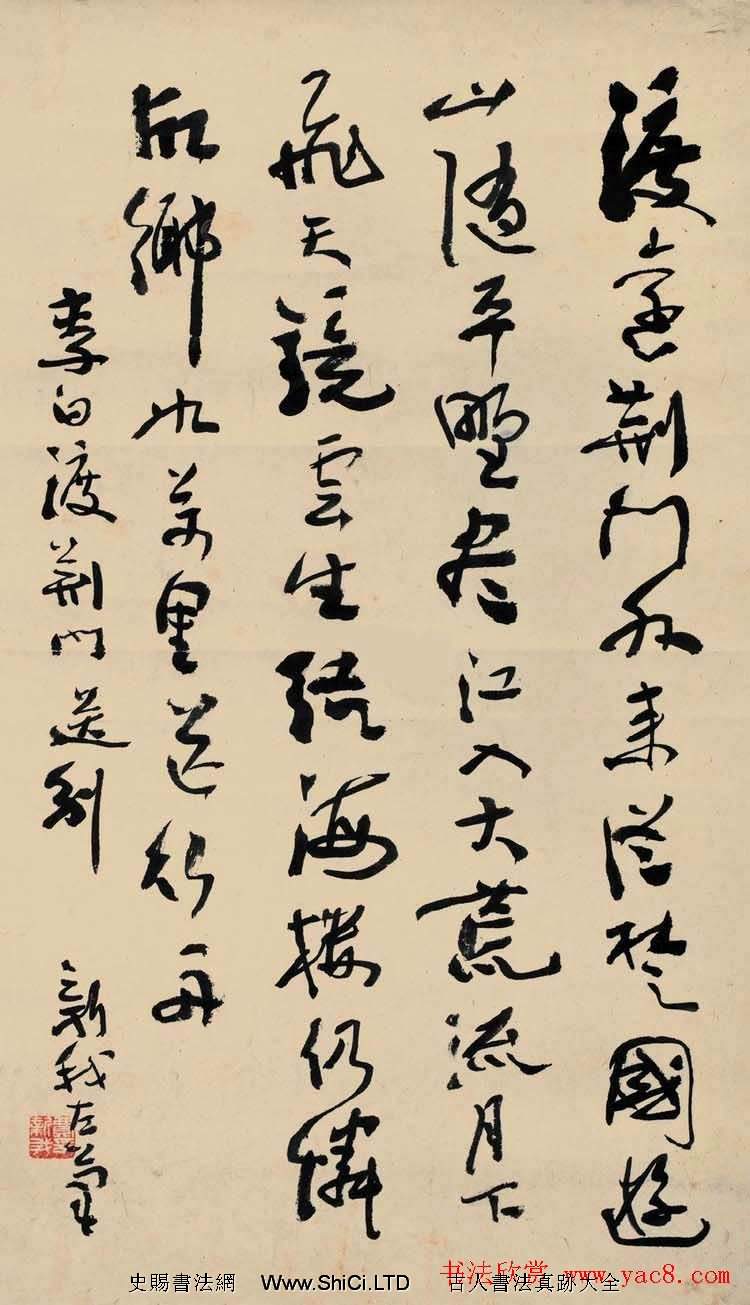 渡遠荆門外来從楚國遊
山随平野尽江入大荒流月下
飛天鏡雲生结海樓仍憐
故鄉水萬里送行舟
李白渡荆門送别 新我左筆
史賜書法網 Www.ShiCi.LTD 古人書法真跡大全
书法欣赏 www.yac8.com